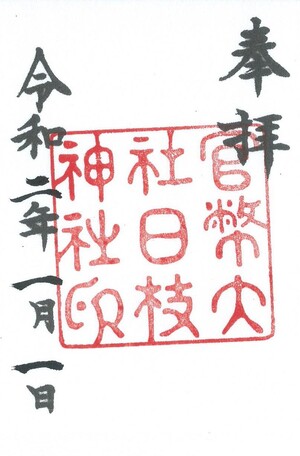 奉拝
官幣大
社日枝
神社印
令和二年一月一日